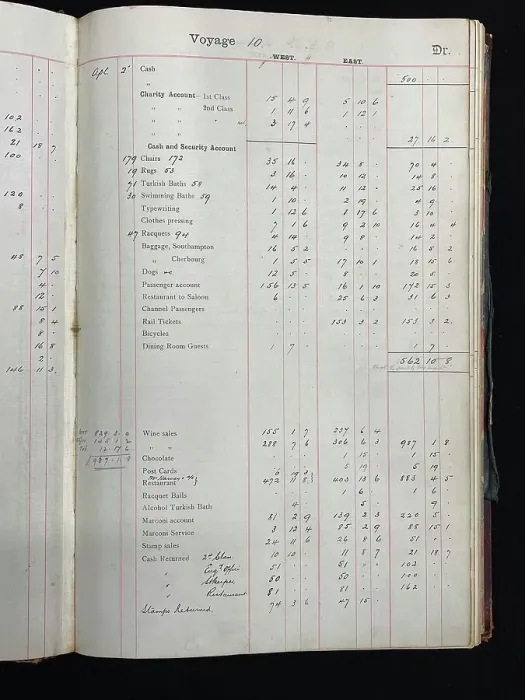 Voyage 10.
Dr.
WEST. EAST.
Cash 500 . .
"
Charity Account—1st Class 15 4 9 5 10 6
" " 2nd Class 1 11 6 1 12 1
" " " 3 17 4 . . .
" "
27 16 2
Cash and Security Account
179 Chairs 172 35 16 . 34 8 . 70 4 .
19 Rugs 53 3 16 . 10 12 . 14 8 .
71 Turkish Baths 58 14 4 . 11 12 . 25 16 .
30 Swimming Baths 59 1 10 . 2 19 . 4 9 .
Typewriting 1 12 6 8 17 6 3 10 .
Clothes pressing 7 1 6 9 2 10 16 4 4
47 Racquets 94 4 14 . 9 8 . 14 2 .
Baggage, Southampton 16 5 2 . . . 16 5 2
" Cherbourg 1 5 5 17 10 1 18 15 6
Dogs 12 5 . 8 . . 20 5 .
Passenger account 156 13 5 16 1 10 172 15 3
Restaurant to Saloon 6 . . 25 6 3 31 6 3
Channel Passengers
Rail Tickets . . . 153 3 2 153 3 2
Bicycles
Dining Room Guests 1 7 . . . . 1 7 .
562 10 8
Wine sales 155 1 7 237 6 4
" " 288 7 6 306 6 3 987 1 8
Chocolate . . . 1 15 . 1 15 .
Post Cards . . . 5 19 . 5 19 .
Restaurant 472 11 8 403 13 6 883 4 5
Racquet Balls . . . 1 6 . 1 6 .
Alcohol Turkish Bath . 4 . . 5 . . 9 .
Marconi account 81 2 9 139 2 3 220 5 .
Marconi Service 3 12 4 85 2 9 88 15 1
Stamp sales 24 11 6 26 8 6 51 . .
Cash Returned 2nd Class 10 10 . 11 8 7 21 18 7
" 51 . . 51 . . 102 . .
" 50 . . 50 . . 100 . .
" Restaurant 81 . . 81 . . 162 . .
Stamps Returned 74 3 6 47 15 .